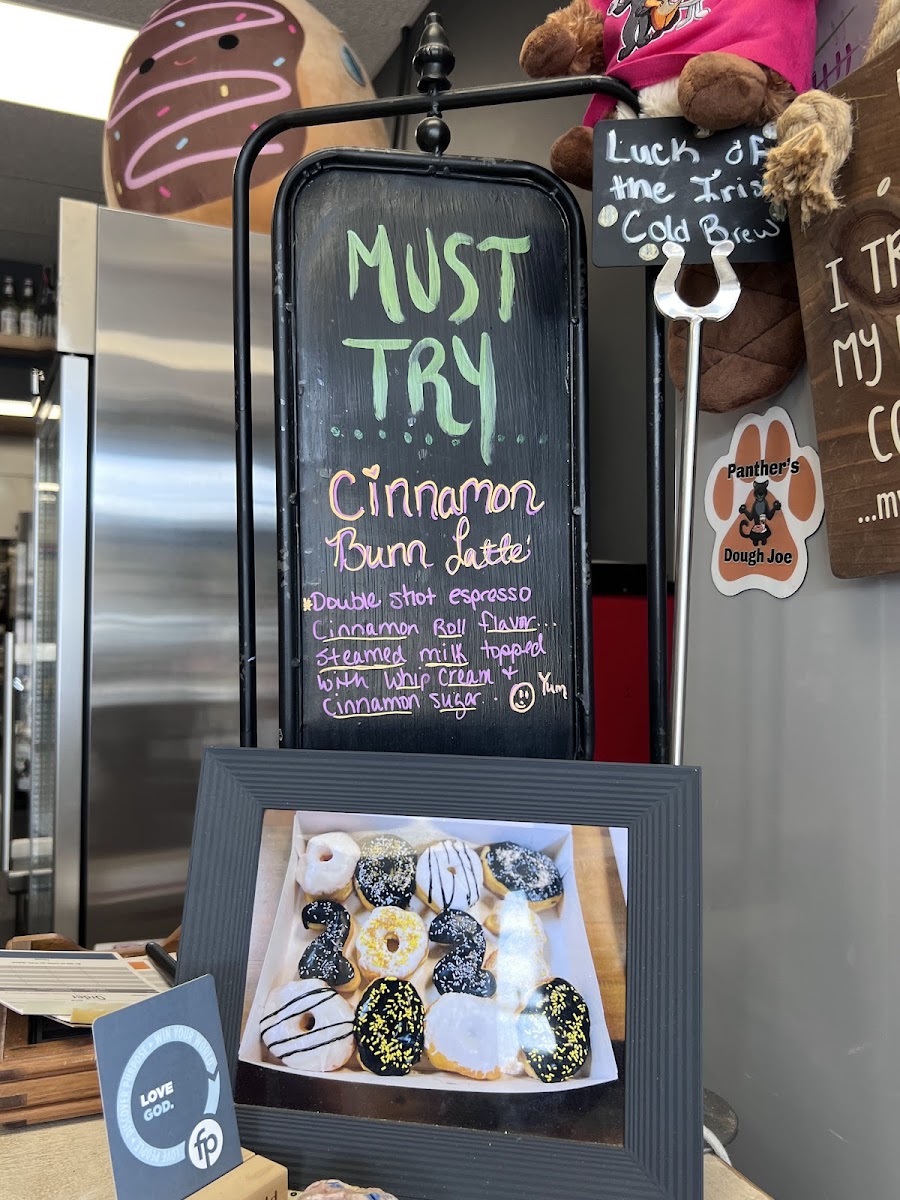 Luck of
the Iris
Cold Brew
MUST
TRY
Cinnamon
Bunn Latte
*Double shot espresso
Cinnamon Roll flavor...
steamed milk topped
with whip cream +
cinnamon sugar. Yum
I TR
MY
CO
...my
Panther's
Dough Joe
Order
WIN YOUR WORLD
LOVE PEOPLE
LOVE
GOD.
fp